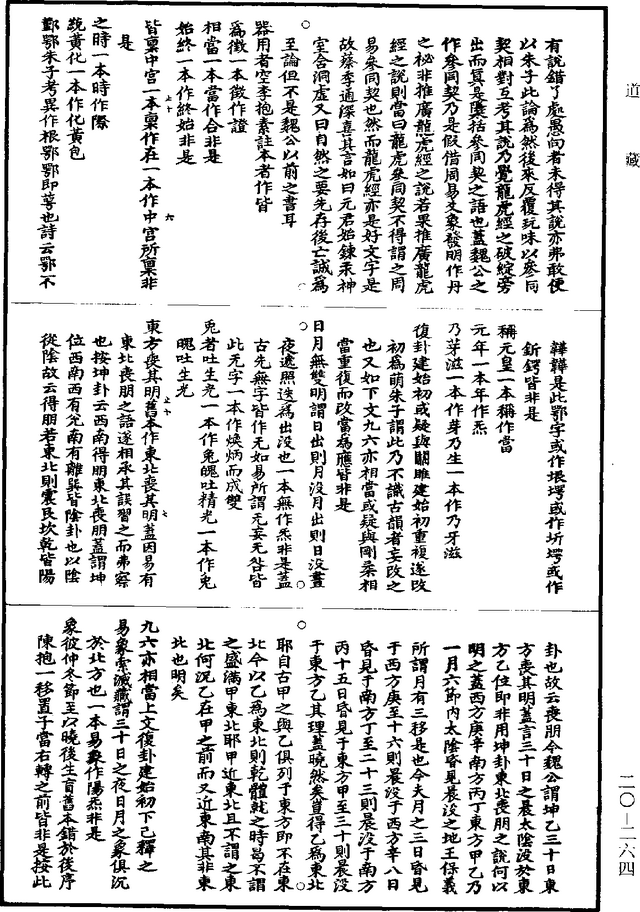 道藏
有說錯了處愚向者未得其說亦弗敢便
以朱子此論為然後來反覆玩味以參同
契相對互考其說乃覺龍虎經之破綻旁
出而算是櫽括參同契之語也蓋魏公之
作參同契乃是假借周易爻象發明作丹
之祕非推廣龍虎經之說若果推廣龍虎
經之說則當曰龍虎參同契不得謂之周
易參同契也然而龍虎經亦是好文字是
故蔡季通深喜其言如曰元君始鍊汞神
室含洞虛又曰自然之要先存後亡誠為
至論但不是魏公以前之書耳
器用者空李抱素註本者作皆
為徵一本徵作證
相當一本當作合非是
始終一本作終始非是
上十
六
皆稟中宮一本稟作在一本作中宮所稟非
是
之時一本時作際
巍黃化一本作化黃包
鄞鄂朱子考異作根鄂鄂即萼也詩云鄂不
韡韡是此鄂字或作垠堮或作圻堮或作
釿鍔皆非是
稱元皇一本稱作當
元年一本年作炁
乃芽滋一本作芽乃生一本作乃牙滋
復卦建始初或疑與關雎建始初重複遂改
初為萌朱子謂此乃不識古韻者妄改之
也又如下文九六亦相當或疑與剛柔相
當重復而改當為應皆非是
日月無雙明謂日出則月沒月出則日沒晝
夜遞照迭為出沒也一本無作炁非是蓋
古先無字皆作无如易所謂无妄无咎皆
此无字一本作煥炳而成雙
兎者吐生光一本作兔魄吐精光一本作兎
魄吐生光
上十
七
東方喪其明舊本作東北喪其明蓋因易有
東北喪朋之語遂相承其誤習之而弗察
也按坤卦云西南得朋東北喪朋蓋謂坤
位西南西有兌南有離巽皆陰卦也以陰
從陰故云得朋若東北則震艮坎乾皆陽
卦也故云喪朋今魏公謂坤乙三十日東
方喪其明蓋言三十日之晨太陰沒於東
方乙位即非用坤卦東北喪朋之說何以
明之蓋西方庚辛南方丙丁東方甲乙乃
一月六節內太陰昏見晨沒之地王保義
所謂月有三移是也今夫月之三日昏見
于西方庚至十六則晨沒于西方辛八日
昏見于南方丁至二十三則晨沒于南方
丙十五日昏見于東方甲至三十則晨沒
于東方乙其理蓋曉然矣豈得乙為東北
耶自古甲之與乙俱列于東方即不在東
北今以乙為東北則乾體就之時曷不謂
之盛滿甲東北耶甲近東北且不謂之東
北何況乙在甲之前而又近東南其非東
北也明矣
九六亦相當上文復卦建始初下已釋之
易象索滅藏謂三十日之夜日月之象俱沉
於北方也一本易象作陽炁非是
象彼仲冬節至以曉後生盲舊本錯於後序
陳抱一移置子當右轉之前皆非是按此
二〇—二六四